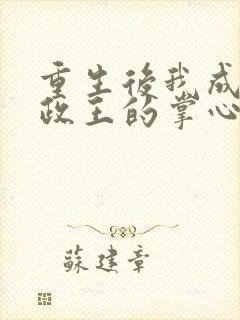 重生後我成
政王的掌心
蘇建章